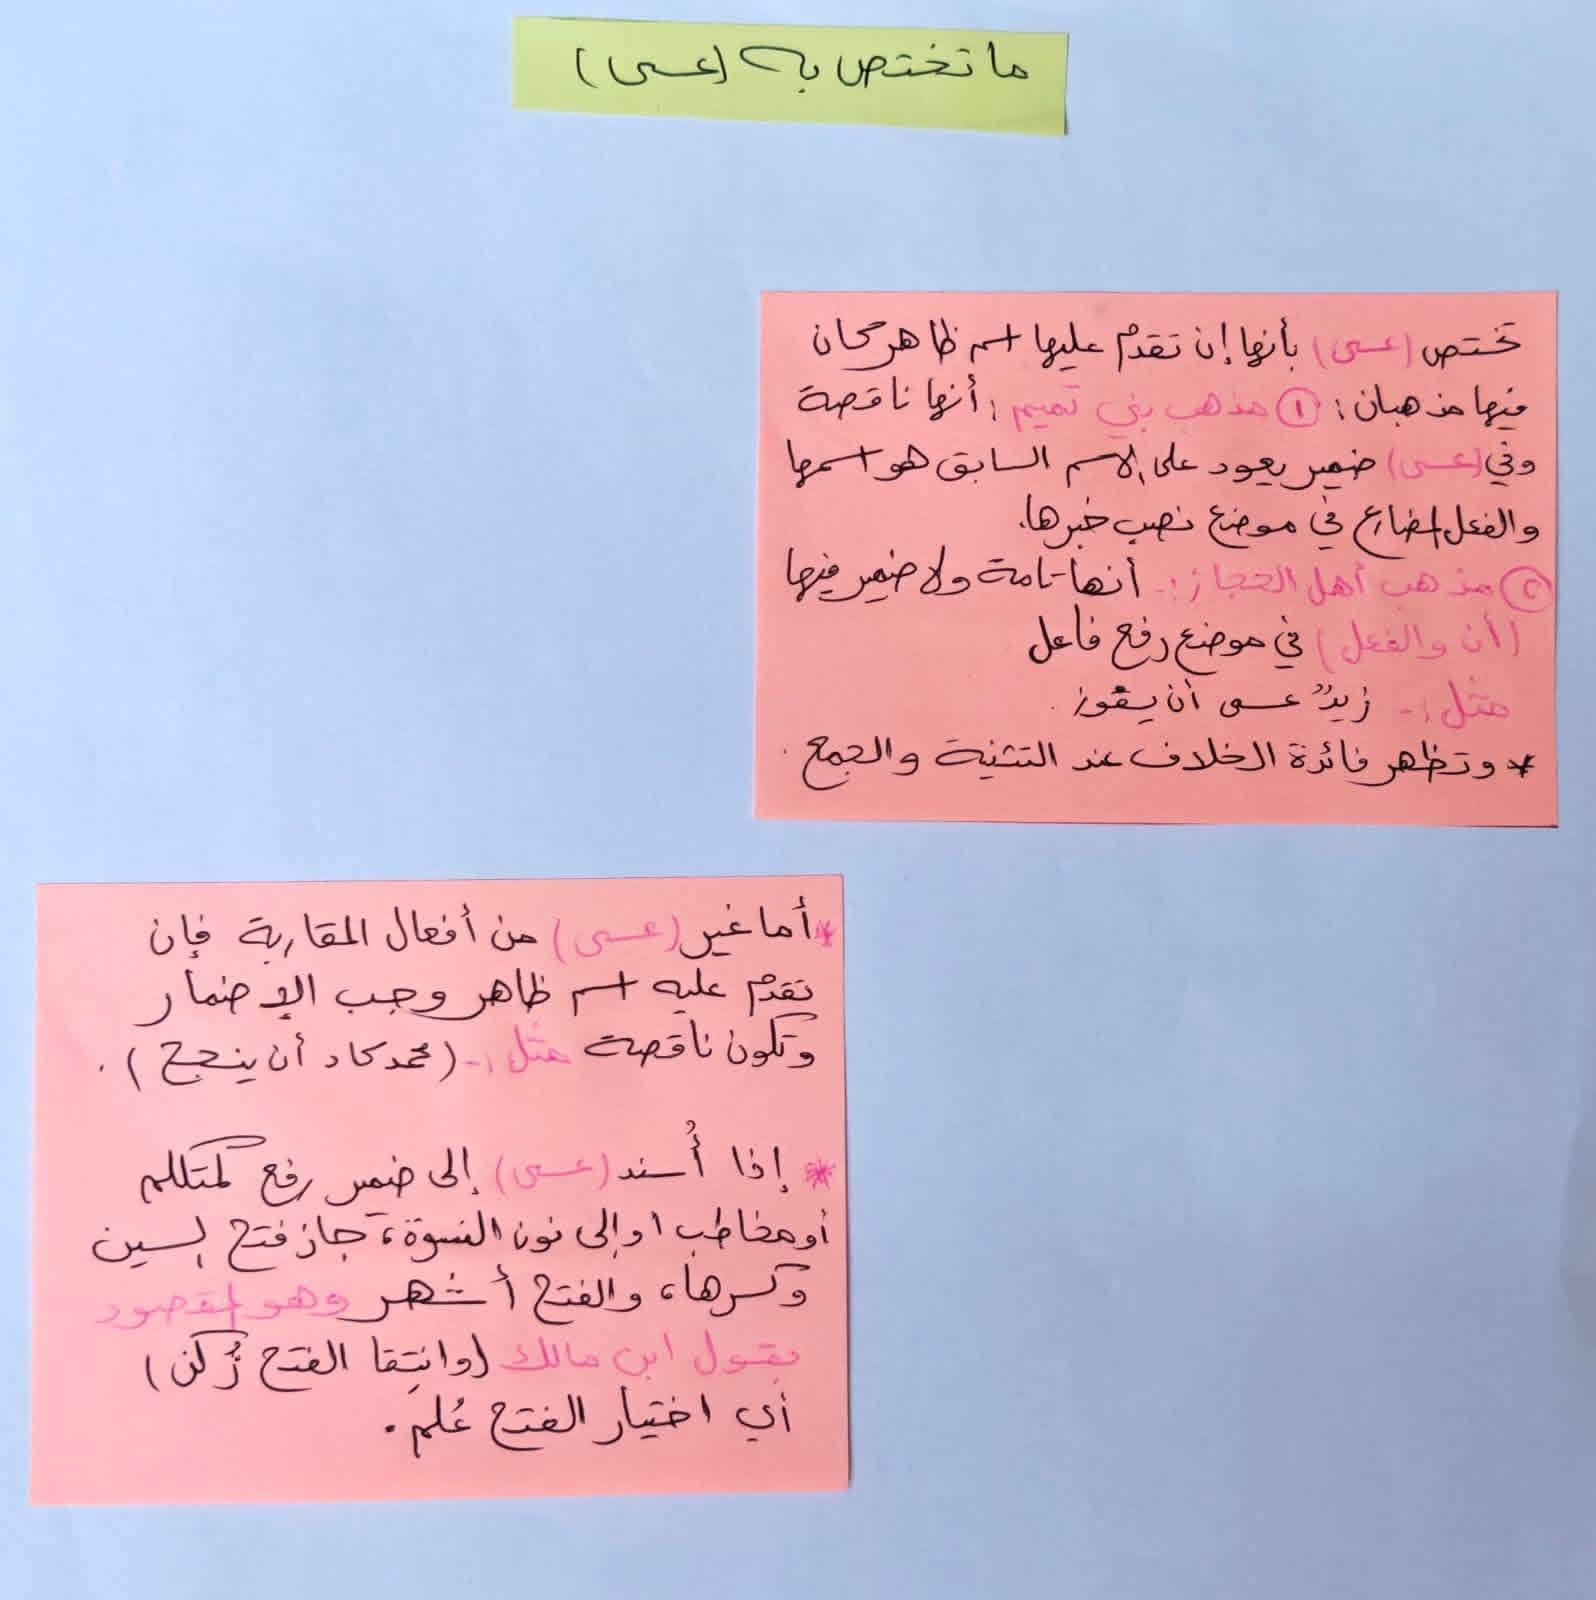 ما تختص به (عسى)
تختص (عسى) بأنها إن تقدم عليها اسم ظاهر كان
فيها مذهبان: ① مذهب بني تميم: أنها ناقصة
وفي (عسى) ضمير يعود على الاسم السابق هو اسمها
والفعل المضارع في موضع نصب خبرها.
② مذهب أهل الحجاز:- أنها تامة ولا ضمير فيها
(أن والفعل) في موضع رفع فاعل
مثل:- زيدٌ عسى أن يفوز.
* وتظهر فائدة الخلاف عند التثنية والجمع.
* أما غير (عسى) من أفعال المقاربة فإن
تقدم عليه اسم ظاهر وجب الإضمار
وتكون ناقصة مثل:- (محمد كاد أن ينجح).
* إذا أُسند (عسى) إلى ضمير رفع لمتكلم
أو مخاطب او إلى نون النسوة، جاز فتح السين
وكسرها، والفتح أشهر وهو المقصود
بقول ابن مالك (وانتِقا الفتح زُكن)
أي اختيار الفتح عُلم.